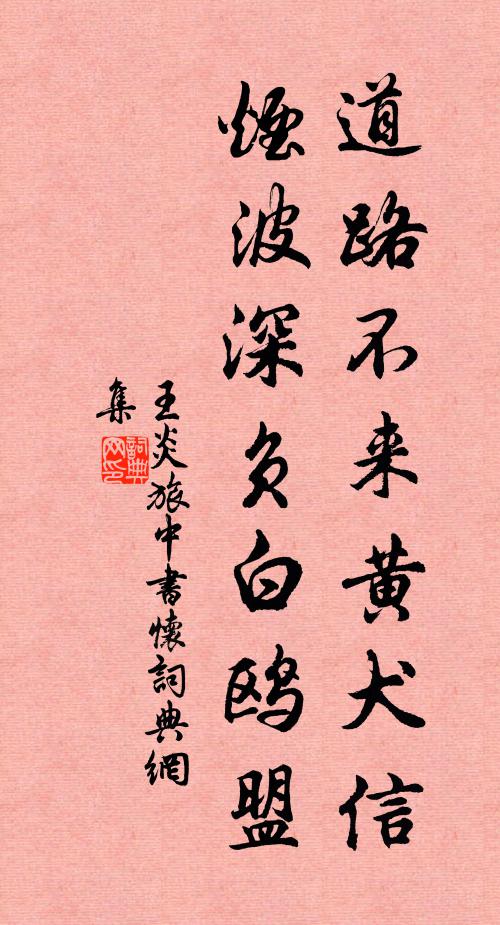 道路不来黄犬信
煙波深负白鸥盟
王炎旅中書懷詞典網
集
詞典网印